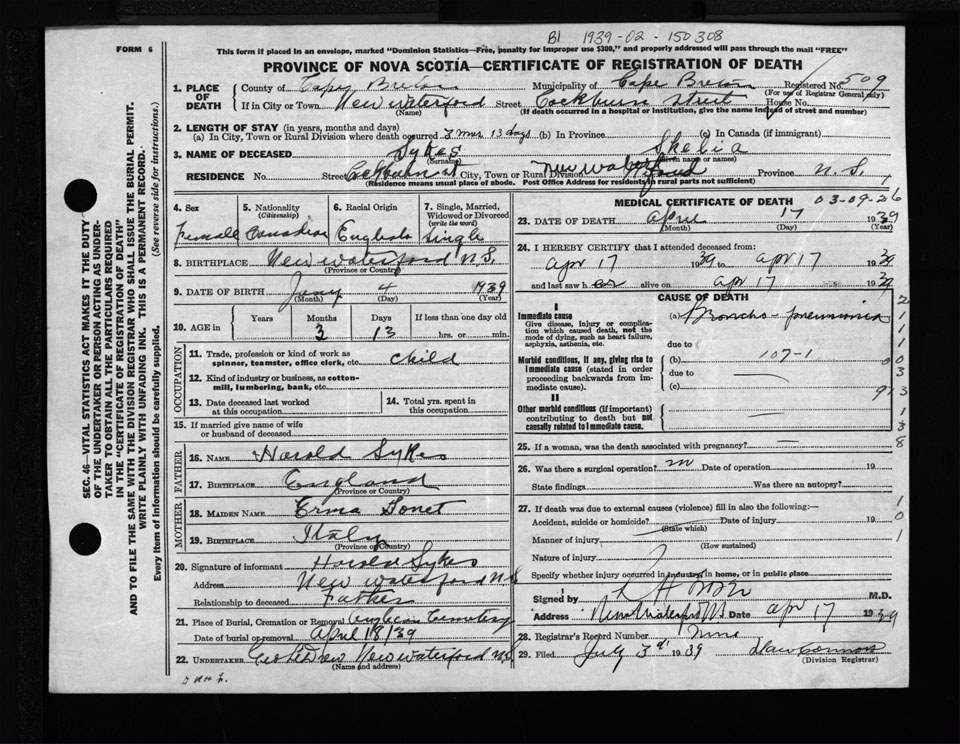 B1 1939-02-150308
FORM 6
This form if placed in an envelope, marked "Dominion Statistics—Free, penalty for improper use $300," and properly addressed will pass through the mail "FREE"
PROVINCE OF NOVA SCOTIA—CERTIFICATE OF REGISTRATION OF DEATH
1. PLACE OF DEATH County of Cape Breton Municipality of Cape Breton Registered No. 509
(For use of Registrar General only)
If in City or Town New Waterford Street Cockburn Street House No.
(Name) (If death occurred in a hospital or institution, give the name instead of street and number)
2. LENGTH OF STAY (in years, months and days)
(a) In City, Town or Rural Division where death occurred 3 mos 13 days (b) In Province (c) In Canada (if immigrant)
3. NAME OF DECEASED Sykes Shelia
(Surname) (Given name or names)
RESIDENCE No. Street Cockburn St City, Town or Rural Division New Waterford Province N.S.
(Residence means usual place of abode. Post Office Address for residents in rural parts not sufficient)
4. Sex 5. Nationality (Citizenship) 6. Racial Origin 7. Single, Married, Widowed or Divorced (write the word)
Female Canadian English Single
8. BIRTHPLACE New Waterford N.S.
(Province or Country)
9. DATE OF BIRTH Jany 4 1939
(Month) (Day) (Year)
10. AGE in Years Months Days If less than one day old
3 13 hrs. or min.
OCCUPATION
11. Trade, profession or kind of work as spinner, teamster, office clerk, etc. Child
12. Kind of industry or business, as cotton-mill, lumbering, bank, etc.
13. Date deceased last worked at this occupation
14. Total yrs. spent in this occupation
15. If married give name of wife or husband of deceased
FATHER
16. NAME Harold Sykes
17. BIRTHPLACE England
(Province or Country)
MOTHER
18. MAIDEN NAME Erma
19. BIRTHPLACE Italy
(Province or Country)
20. Signature of informant Harold Sykes
Address New Waterford N S
Relationship to deceased Father
21. Place of Burial, Cremation or Removal Anglican Cemetery
Date of burial or removal April 18/39
22. UNDERTAKER New Waterford N.S.
(Name and address)
MEDICAL CERTIFICATE OF DEATH 03-09-26
23. DATE OF DEATH April 17 1939
(Month) (Day) (Year)
24. I HEREBY CERTIFY that I attended deceased from:
Apr 17 1939 to Apr 17 1939
and last saw her alive on Apr 17 1939
CAUSE OF DEATH
I
Immediate cause (a) Broncho-pneumonia
Give disease, injury or complication which caused death, not the mode of dying, such as heart failure, asphyxia, asthenia, etc.
due to
Morbid conditions, if any, giving rise to immediate cause (stated in order proceeding backwards from immediate cause).
(b) 107-1
due to
(c)
II
Other morbid conditions (if important) contributing to death but not causally related to immediate cause.
25. If a woman, was the death associated with pregnancy?
26. Was there a surgical operation? no Date of operation 19
State findings Was there an autopsy?
27. If death was due to external causes (violence) fill in also the following:—
Accident, suicide or homicide? Date of injury 19
(State which)
Manner of injury
(How sustained)
Nature of injury
Specify whether injury occurred in industry, in home, or in public place
Signed by M.D.
Address New Waterford NS Date Apr 17 1939
28. Registrar's Record Number
29. Filed July 3rd 1939
(Division Registrar)
SEC. 46—VITAL STATISTICS ACT MAKES IT THE DUTY
OF THE UNDERTAKER OR PERSON ACTING AS UNDER-
TAKER TO OBTAIN ALL THE PARTICULARS REQUIRED
IN THE "CERTIFICATE OF REGISTRATION OF DEATH"
AND TO FILE THE SAME WITH THE DIVISION REGISTRAR WHO SHALL ISSUE THE BURIAL PERMIT.
WRITE PLAINLY WITH UNFADING INK. THIS IS A PERMANENT RECORD.
Every item of Information should be carefully supplied. (See reverse side for instructions.)